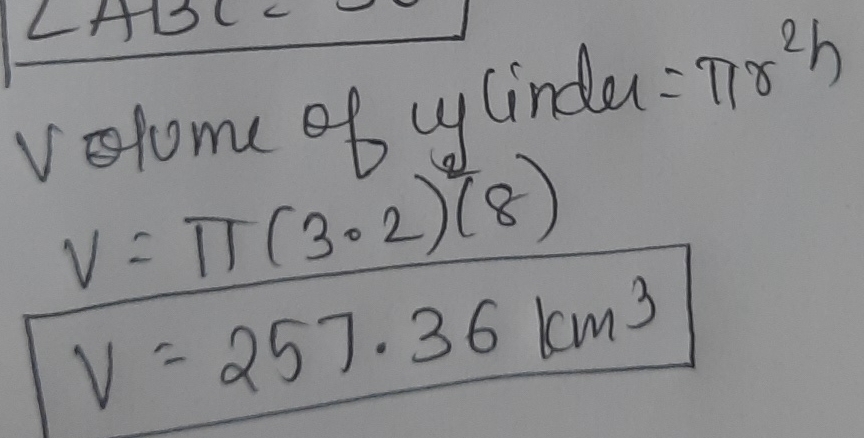 ∠ABC =
Volume of cylinder = πr²h
V = π(3.2)²(8)
V = 257.36 km³